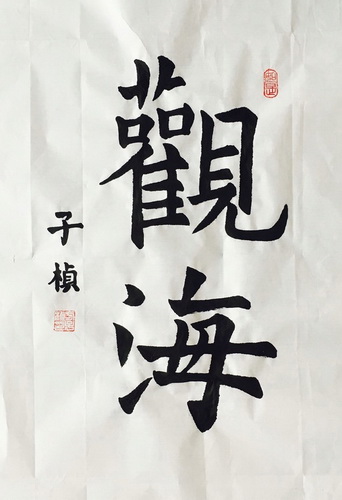 觀海
子楨